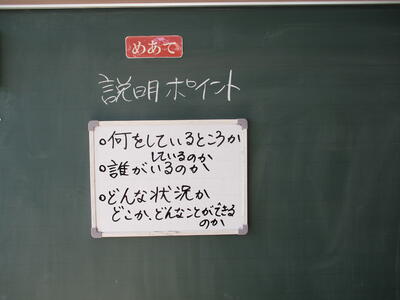 めあて
説明ポイント
○何をしているところか
しているのか
○誰がいるのか
○どんな状況か
どこか、どんなことができる
のか